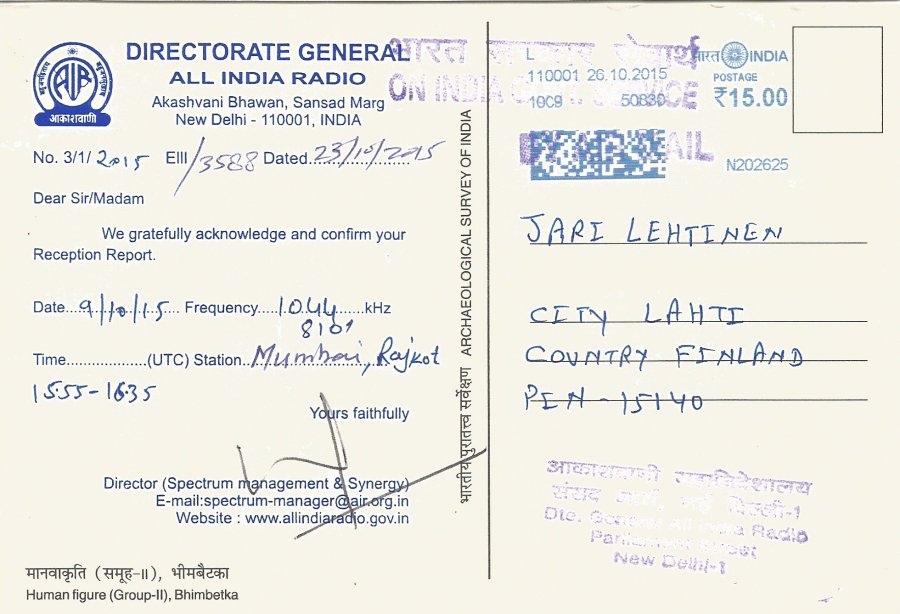 DIRECTORATE GENERAL
ALL INDIA RADIO
Akashvani Bhawan, Sansad Marg
New Delhi - 110001, INDIA
AIR
आकाशवाणी
No. 3/1/2015 EIII/3588 Dated 23/10/2015
Dear Sir/Madam
We gratefully acknowledge and confirm your
Reception Report.
Date...9/10/15... Frequency.....1044.....kHz
8101
Time..................(UTC) Station..Mumbai, Rajkot
1555-1635
Yours faithfully
Director (Spectrum management & Synergy)
E-mail:spectrum-manager@air.org.in
Website : www.allindiaradio.gov.in
मानवाकृति (समूह-II), भीमबैटका
Human figure (Group-II), Bhimbetka
भारतीय पुरातत्त्व सर्वेक्षण ARCHAEOLOGICAL SURVEY OF INDIA
भारत सेवार्थ
ON INDIA SERVICE
AIL
L
110001 26.10.2015
भारत INDIA
POSTAGE
₹15.00
N202625
JARI LEHTINEN
CITY LAHTI
COUNTRY FINLAND
PIN - 15140
आकाशवाणी महानिदेशालय
संसद मार्ग, नई दिल्ली-1
Dte. General All India Radio
Parliament Street
New Delhi-1